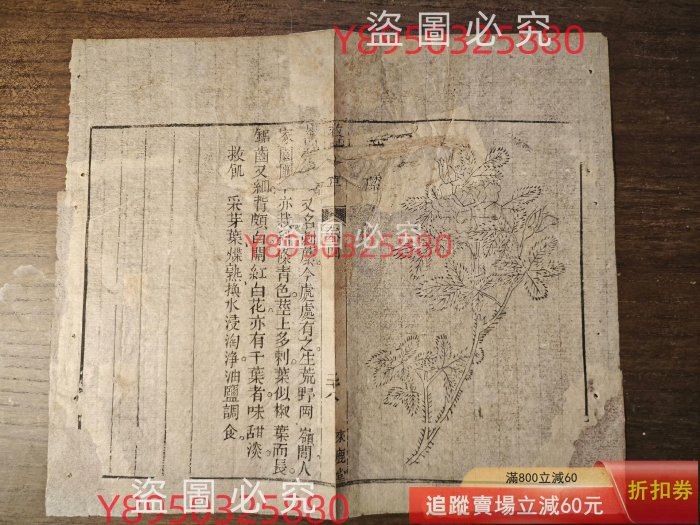 盜圖必究
Y8950325880
又名 蘼今處處有之。生荒野岡嶺間人
家園 亦栽 條青色。莖上多刺葉似椒葉而長
鋸齒又細背頗白開紅白花。亦有千葉者。味甜淡
救飢 采芽葉煠熟換水浸淘淨油鹽調食
來鹿堂
盜圖必究
Y8950325880
盜圖必究
Y8950325880
滿800立減60
追蹤賣場立減60元
折扣券